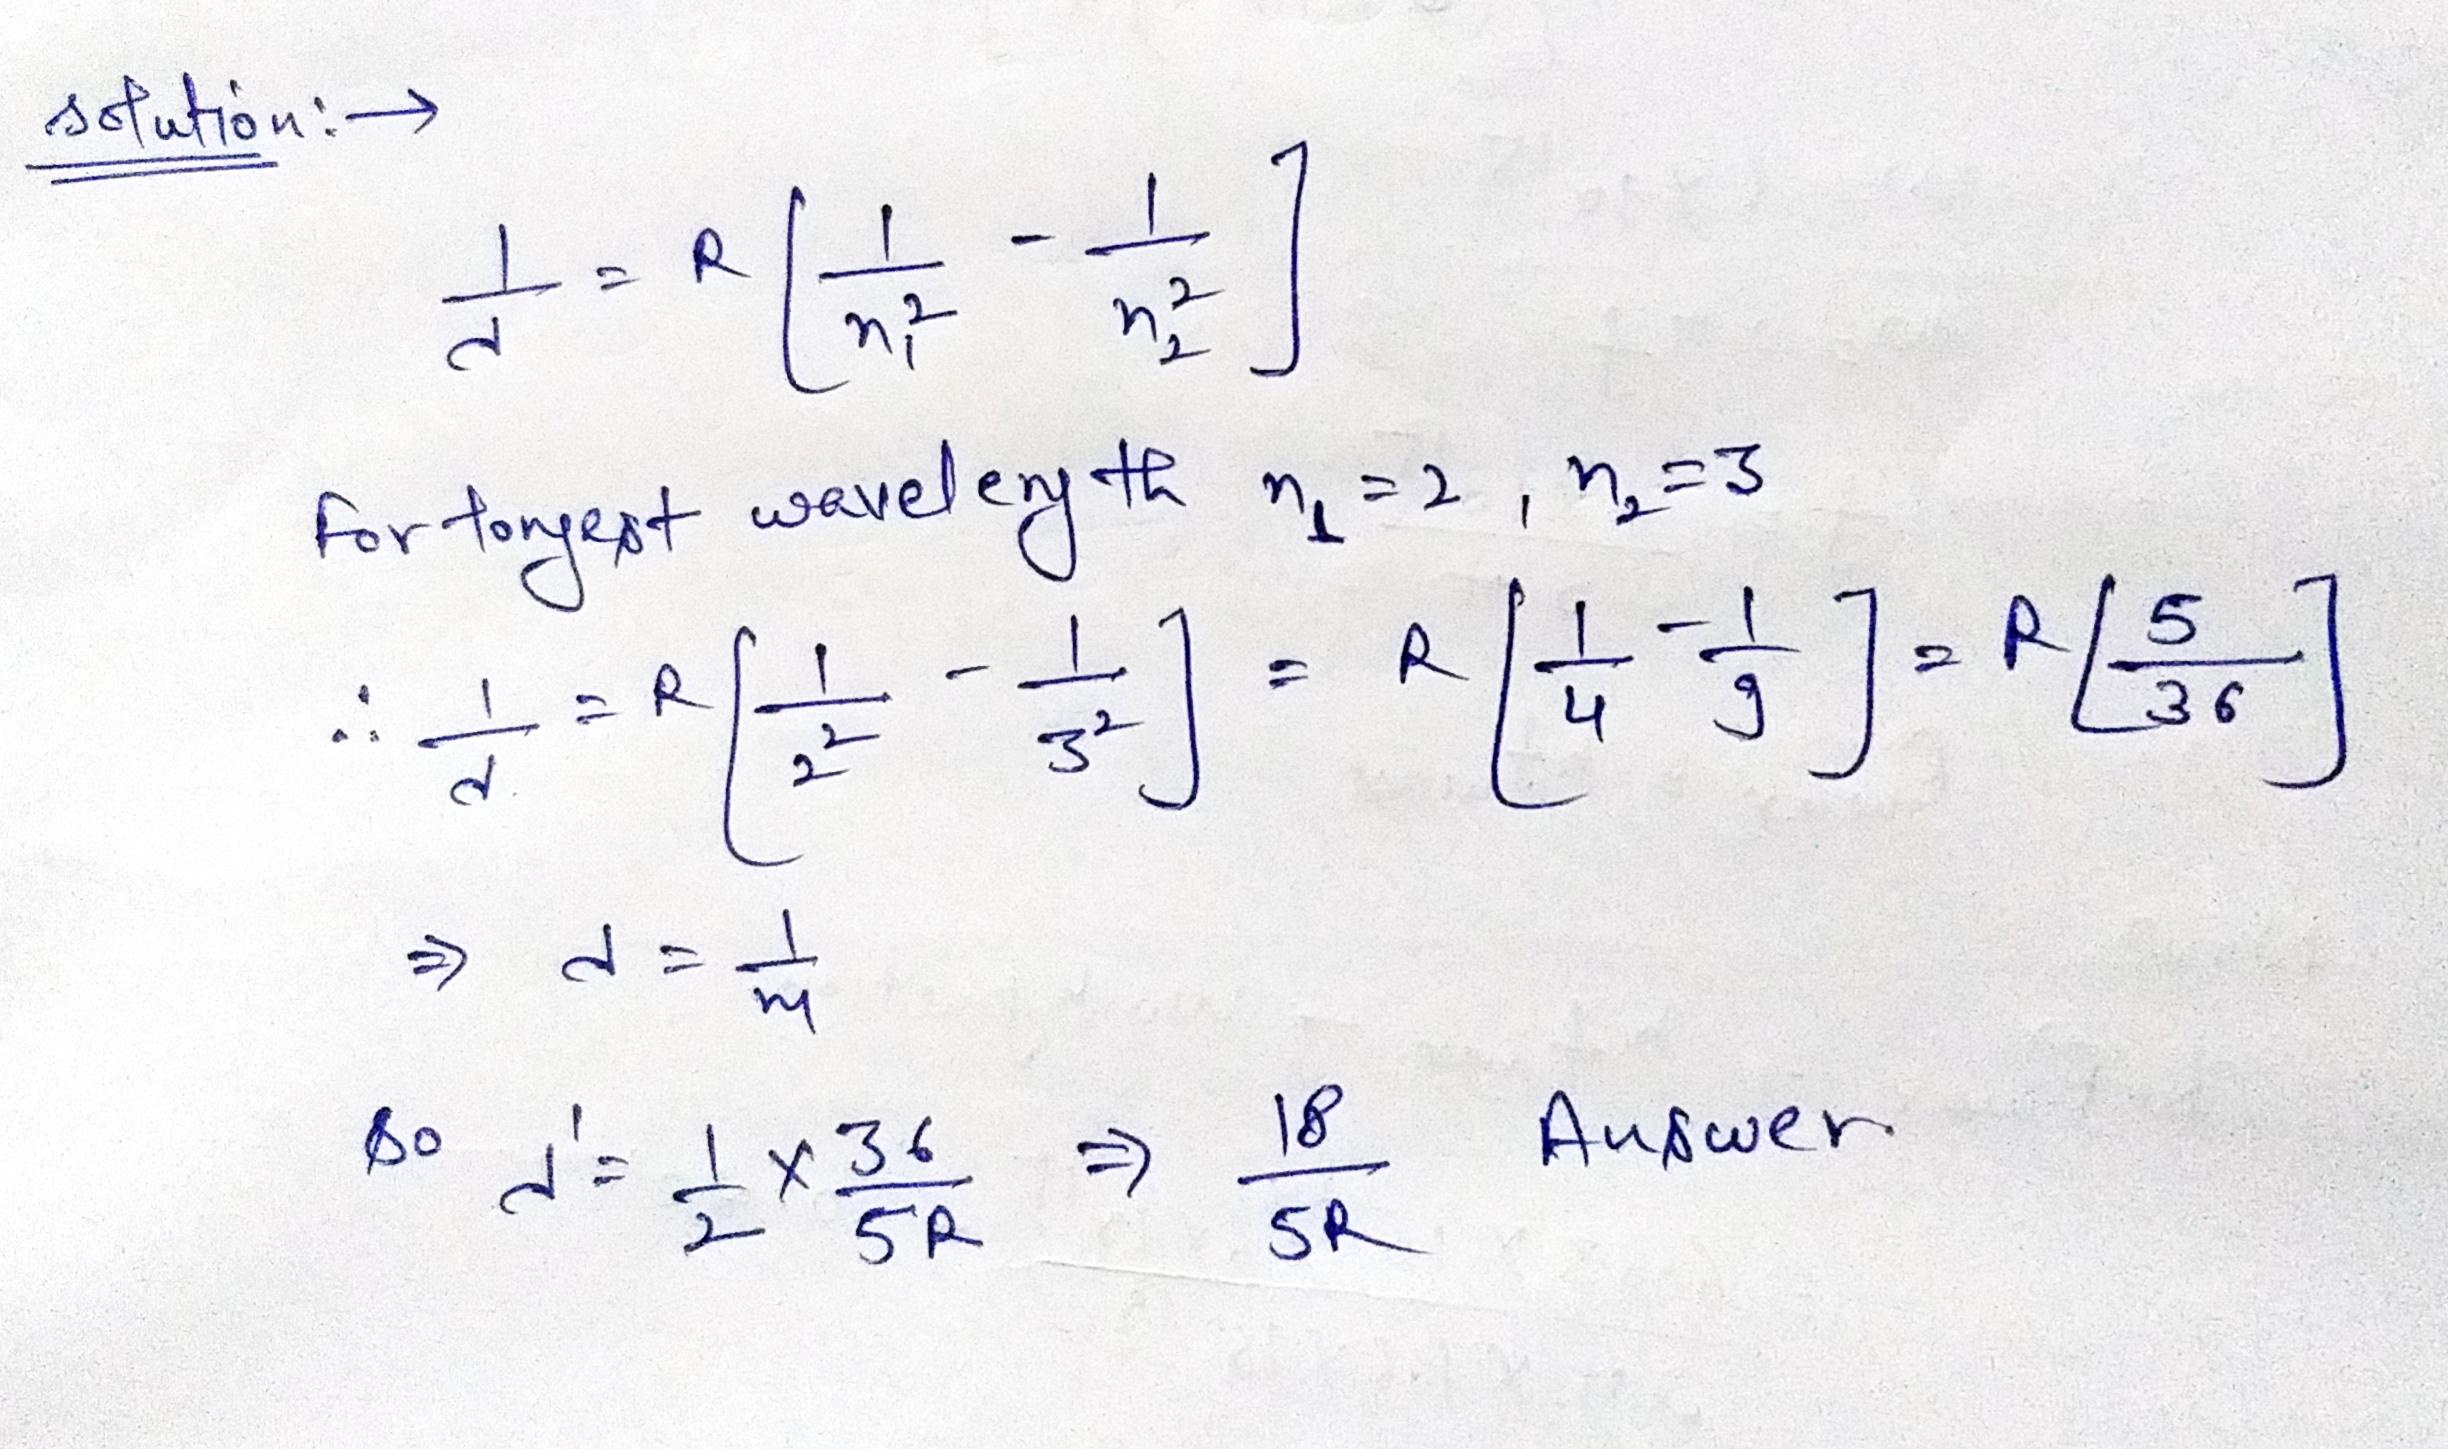 solution:→
1/λ = R[1/n₁² - 1/n₂²]
For longest wavelength n₁=2, n₂=3
∴ 1/λ = R[1/2² - 1/3²] = R[1/4 - 1/9] = R[5/36]
⇒ λ = 1/m
so λ' = 1/2 × 36/5R ⇒ 18/5R Answer